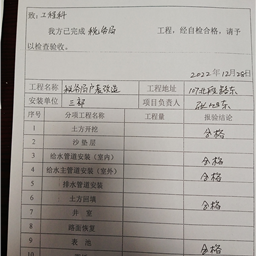 致：工程科
我方已完成 税务局 工程，经自检合格，请予
以检查验收。
2022年12月28日
工程名称 税务局户表改造 工程地址 107北段路东
安装单位 三部 项目负责人
序号 分项工程名称 工程量 报验结论
1 土方开挖 合格
2 沙垫层
3 给水管道安装（室内） 合格
4 给水主管道安装（室外） 合格
5 排水管道安装
6 土方回填 合格
7 井室
8 路面恢复
9 表池 合格
10